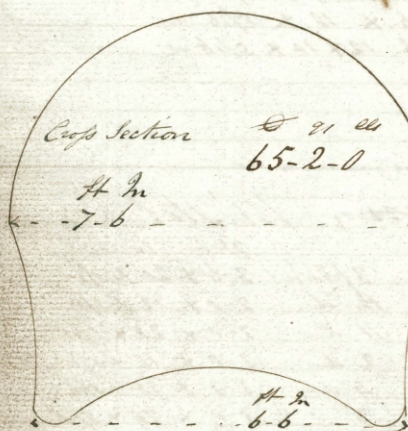 Crofs Section
65-2-0
ft In
7-6
ft In
6-6